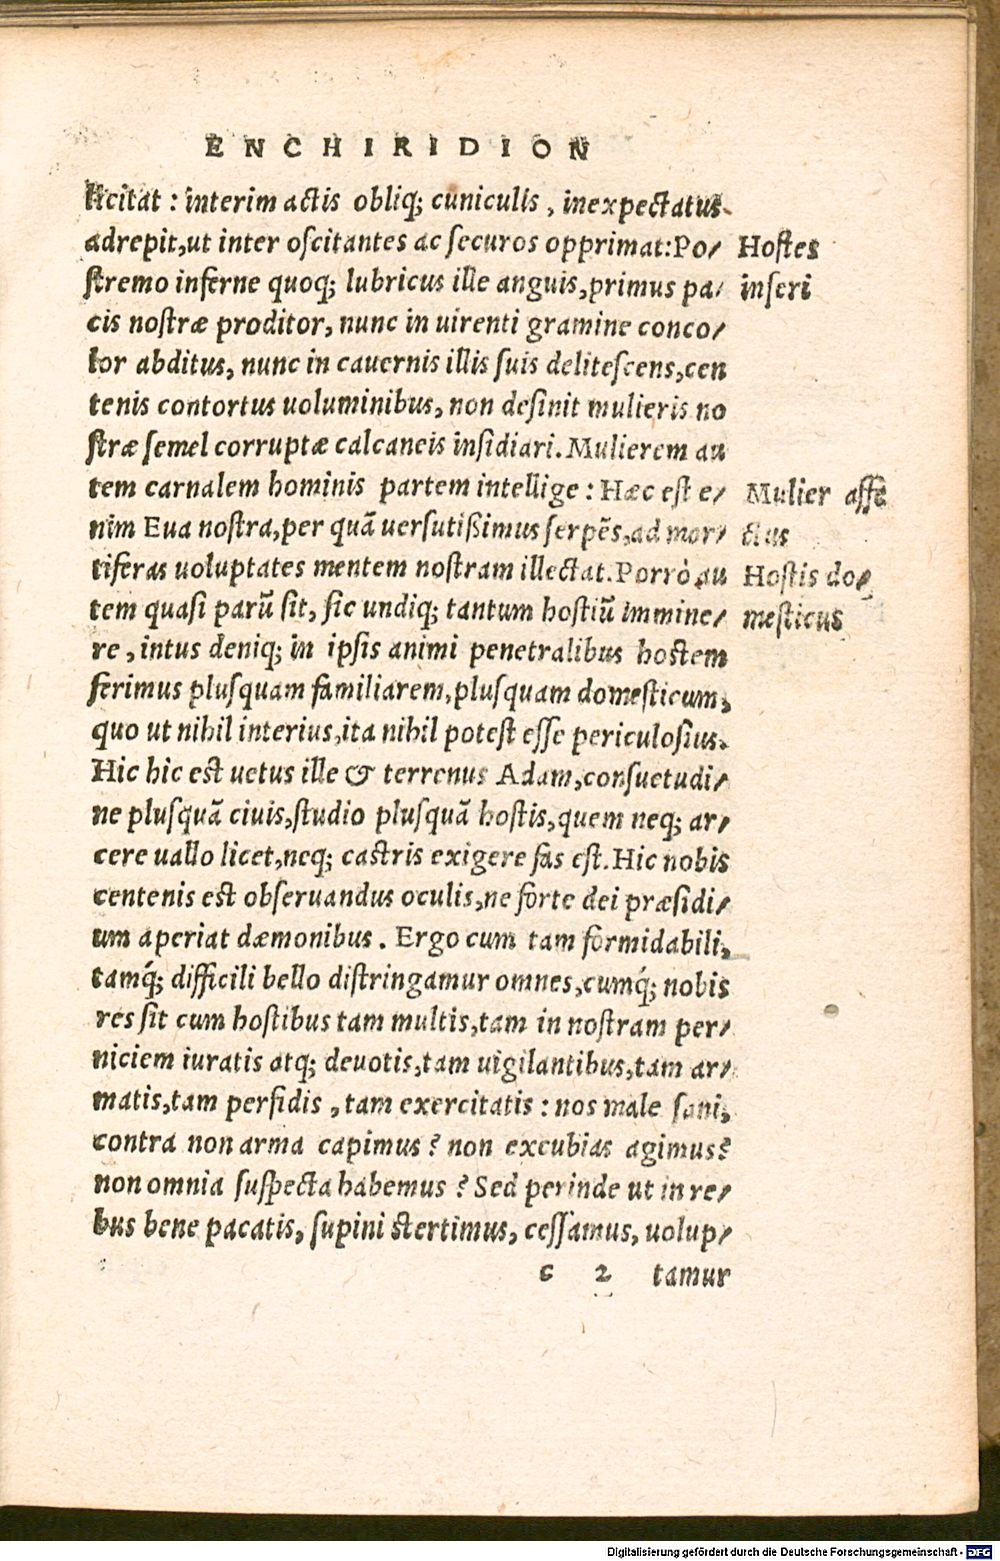 ENCHIRIDION
licitat : interim actis obliq; cuniculis , inexpectatus
adrepit,ut inter oscitantes ac securos opprimat:Po/
stremo inferne quoq; lubricus ille anguis,primus pa/
cis nostræ proditor, nunc in uirenti gramine conco/
lor abditus, nunc in cauernis illis suis delitescens,cen
tenis contortus uoluminibus, non desinit mulieris no
stræ semel corruptæ calcaneis insidiari. Mulierem au
tem carnalem hominis partem intellige : Hæc est e/
nim Eua nostra,per quã uersutißimus serpẽs,ad mor/
tiferas uoluptates mentem nostram illectat.Porrò au
tem quasi parũ sit, sic undiq; tantum hostiũ immine/
re , intus deniq; in ipsis animi penetralibus hostem
ferimus plusquam familiarem,plusquam domesticum,
quo ut nihil interius,ita nihil potest esse periculosius.
Hic hic est uetus ille & terrenus Adam,consuetudi/
ne plusquã ciuis,studio plusquã hostis,quem neq; ar/
cere uallo licet,neq; castris exigere fas est.Hic nobis
centenis est obseruandus oculis,ne forte dei præsidi/
um aperiat dæmonibus . Ergo cum tam formidabili,
tamq́; difficili bello distringamur omnes,cumq́; nobis
res sit cum hostibus tam multis,tam in nostram per/
niciem iuratis atq; deuotis,tam uigilantibus,tam ar/
matis,tam perfidis , tam exercitatis : nos male sani,
contra non arma capimus ? non excubias agimus?
non omnia suspecta habemus ? Sed perinde ut in re/
bus bene pacatis, supini stertimus, cessamus, uolup/
c 2 tamur
Hostes
inferi
Mulier affe
ctus
Hostis do/
mesticus
Digitalisierung gefördert durch die Deutsche Forschungsgemeinschaft - DFG